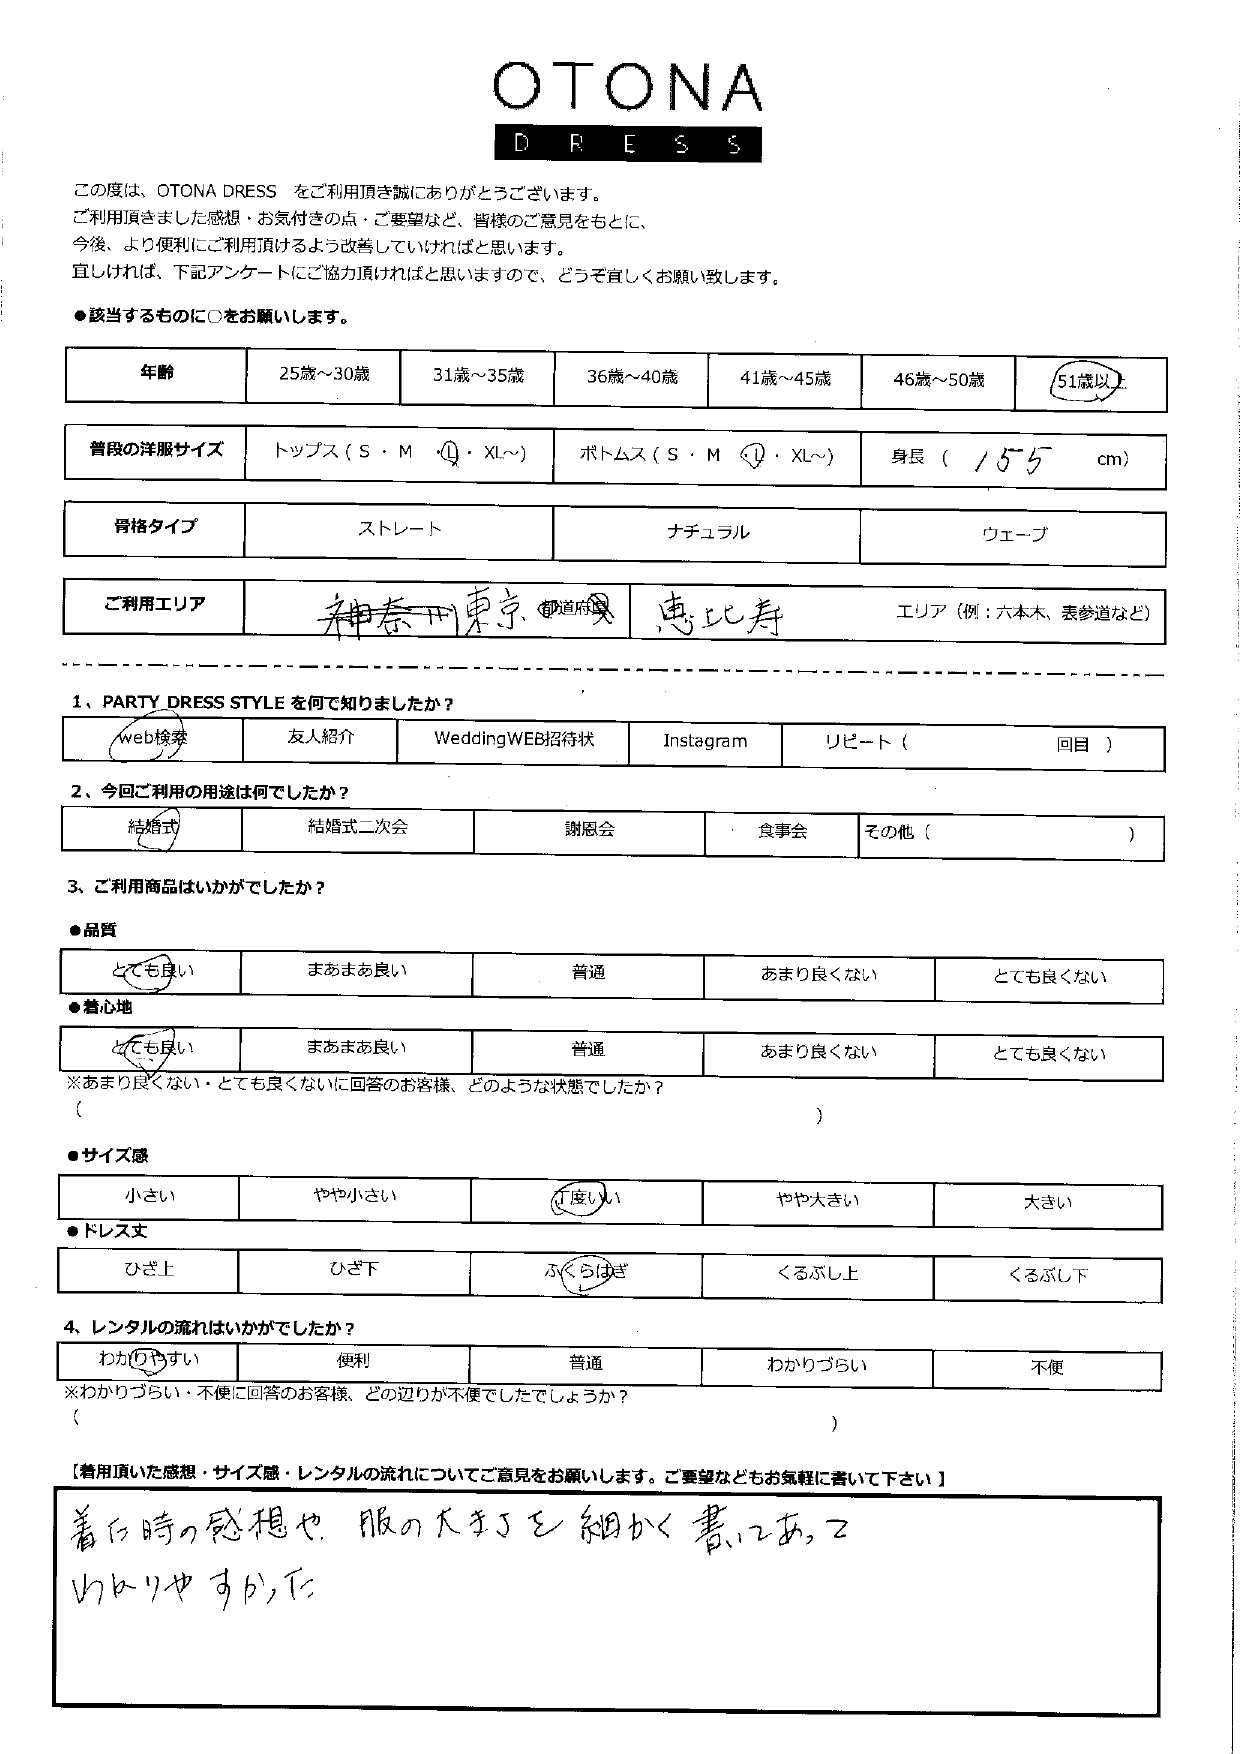 OTONA
DRESS
この度は、OTONA DRESS をご利用頂き誠にありがとうございます。
ご利用頂きました感想・お気付きの点・ご要望など、皆様のご意見をもとに、
今後、より便利にご利用頂けるよう改善していければと思います。
宜しければ、下記アンケートにご協力頂ければと思いますので、どうぞ宜しくお願い致します。
●該当するものに○をお願いします。
年齢 25歳～30歳 31歳～35歳 36歳～40歳 41歳～45歳 46歳～50歳 51歳以上
普段の洋服サイズ トップス ( S ・ M ・L ・ XL～) ボトムス ( S ・ M ・L ・ XL～) 身長 ( 155 cm)
骨格タイプ ストレート ナチュラル ウェーブ
ご利用エリア 神奈川 東京 都道府県 恵比寿 エリア（例：六本木、表参道など）
1、PARTY DRESS STYLE を何で知りましたか？
web検索 友人紹介 WeddingWEB招待状 Instagram リピート ( 回目 )
2、今回ご利用の用途は何でしたか？
結婚式 結婚式二次会 謝恩会 食事会 その他 ( )
3、ご利用商品はいかがでしたか？
●品質
とても良い まあまあ良い 普通 あまり良くない とても良くない
●着心地
とても良い まあまあ良い 普通 あまり良くない とても良くない
※あまり良くない・とても良くないに回答のお客様、どのような状態でしたか？
( )
●サイズ感
小さい やや小さい 丁度いい やや大きい 大きい
●ドレス丈
ひざ上 ひざ下 ふくらはぎ くるぶし上 くるぶし下
4、レンタルの流れはいかがでしたか？
わかりやすい 便利 普通 わかりづらい 不便
※わかりづらい・不便に回答のお客様、どの辺りが不便でしたでしょうか？
( )
【着用頂いた感想・サイズ感・レンタルの流れについてご意見をお願いします。ご要望などもお気軽に書いて下さい 】
着た時の感想や 服の大きさを 細かく 書いてあって
わかりやすかった